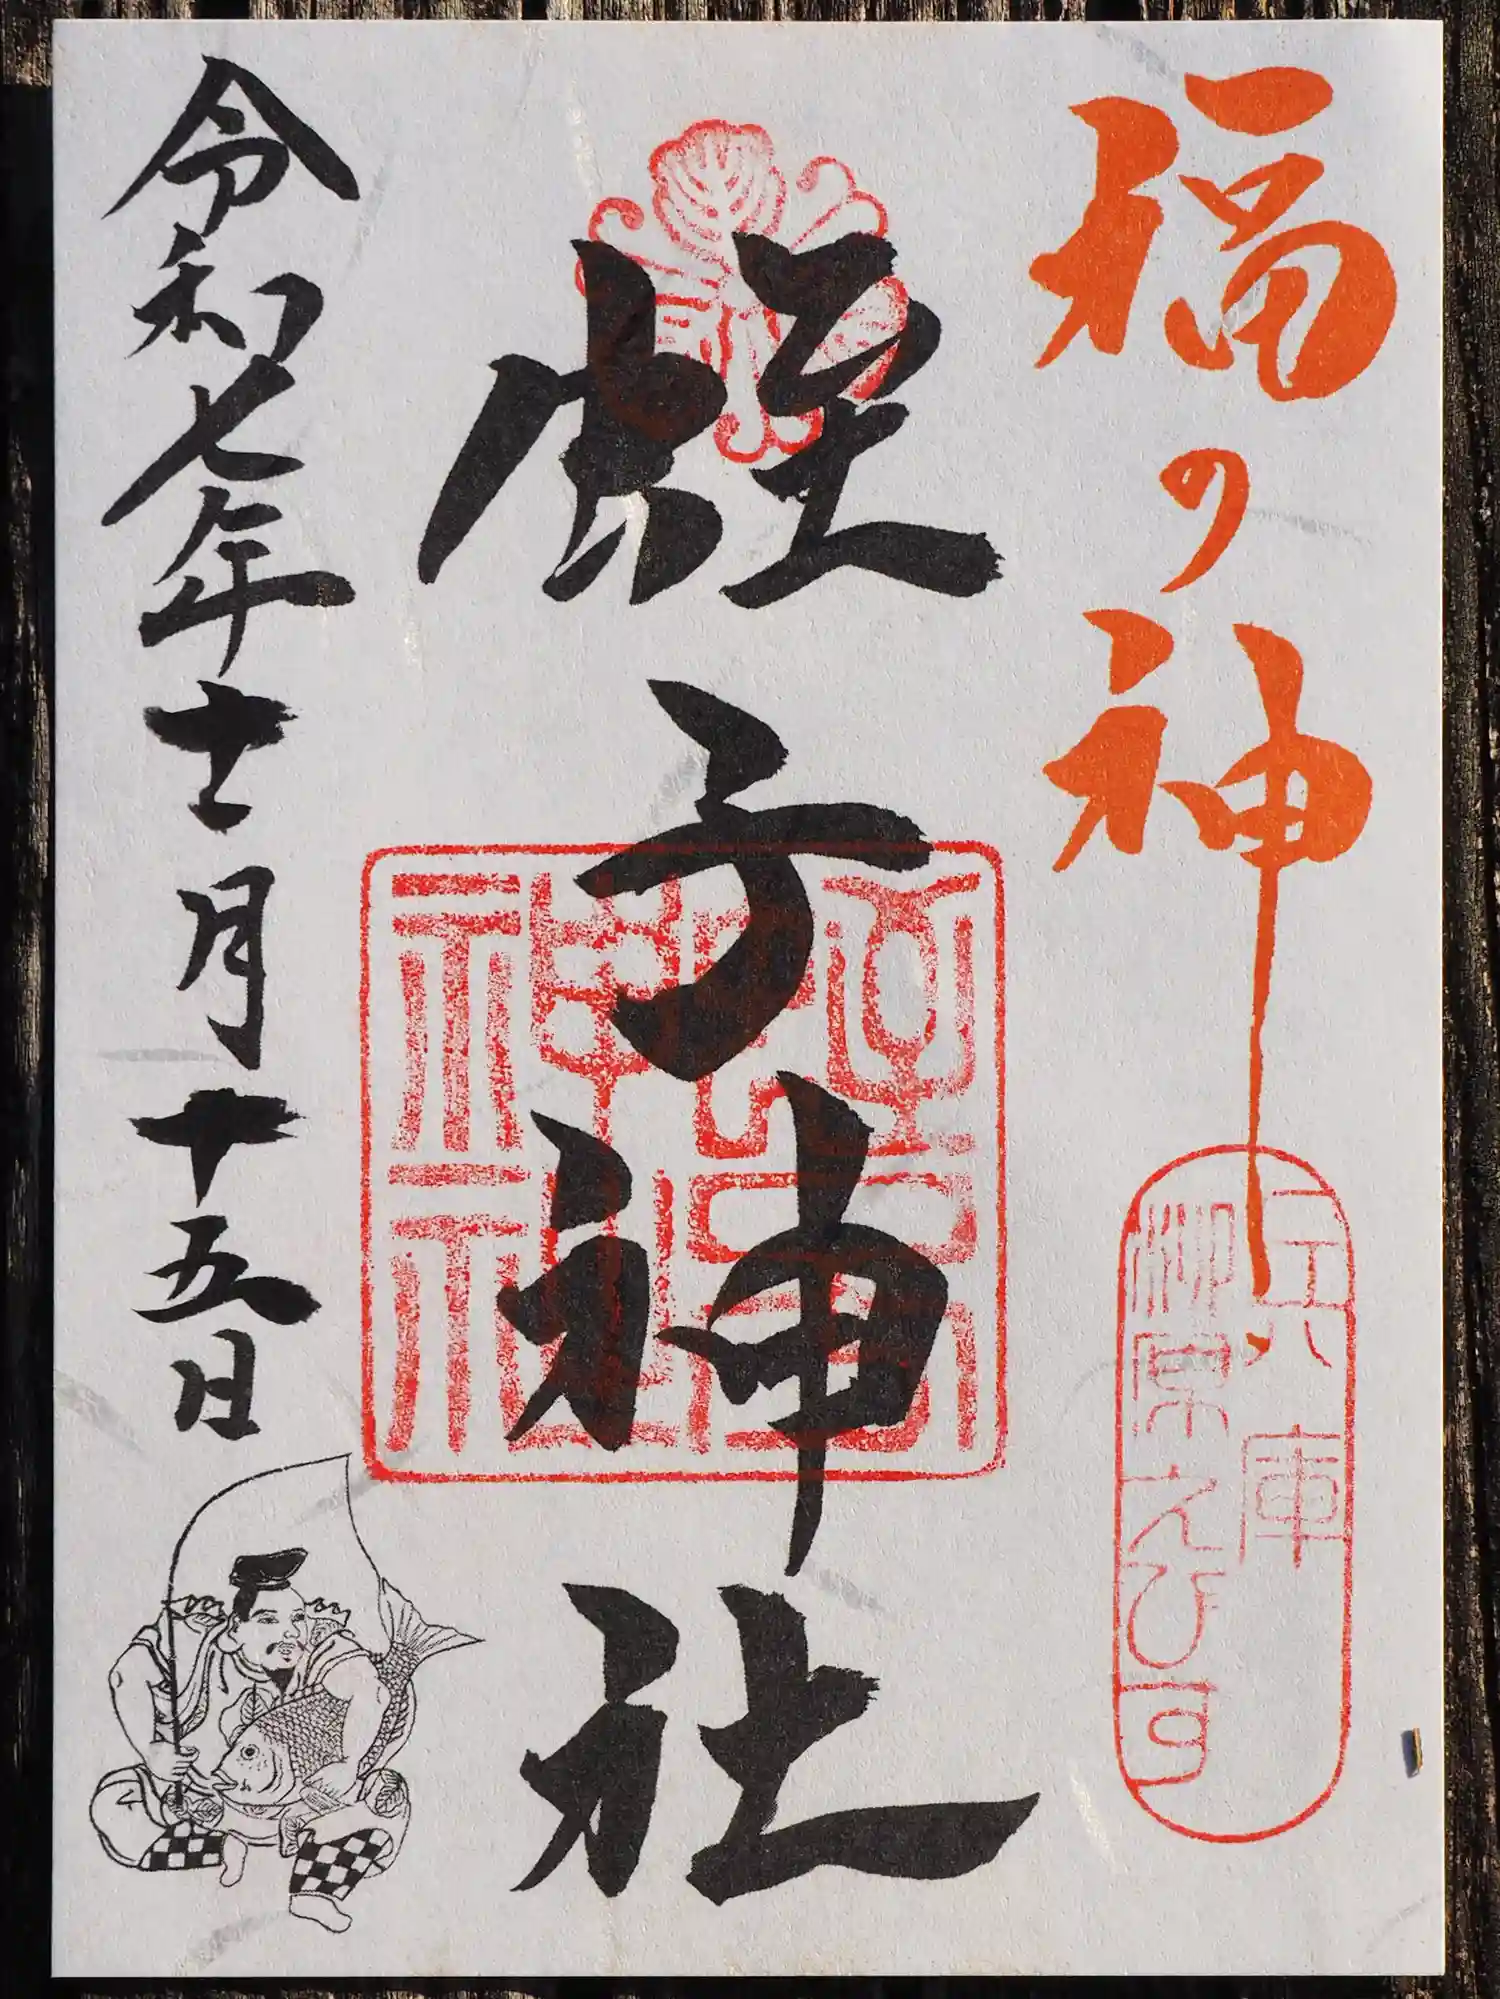 福の神
兵庫
柳原えびす
蛭子神社
蛭子神社
令和七年十一月十五日